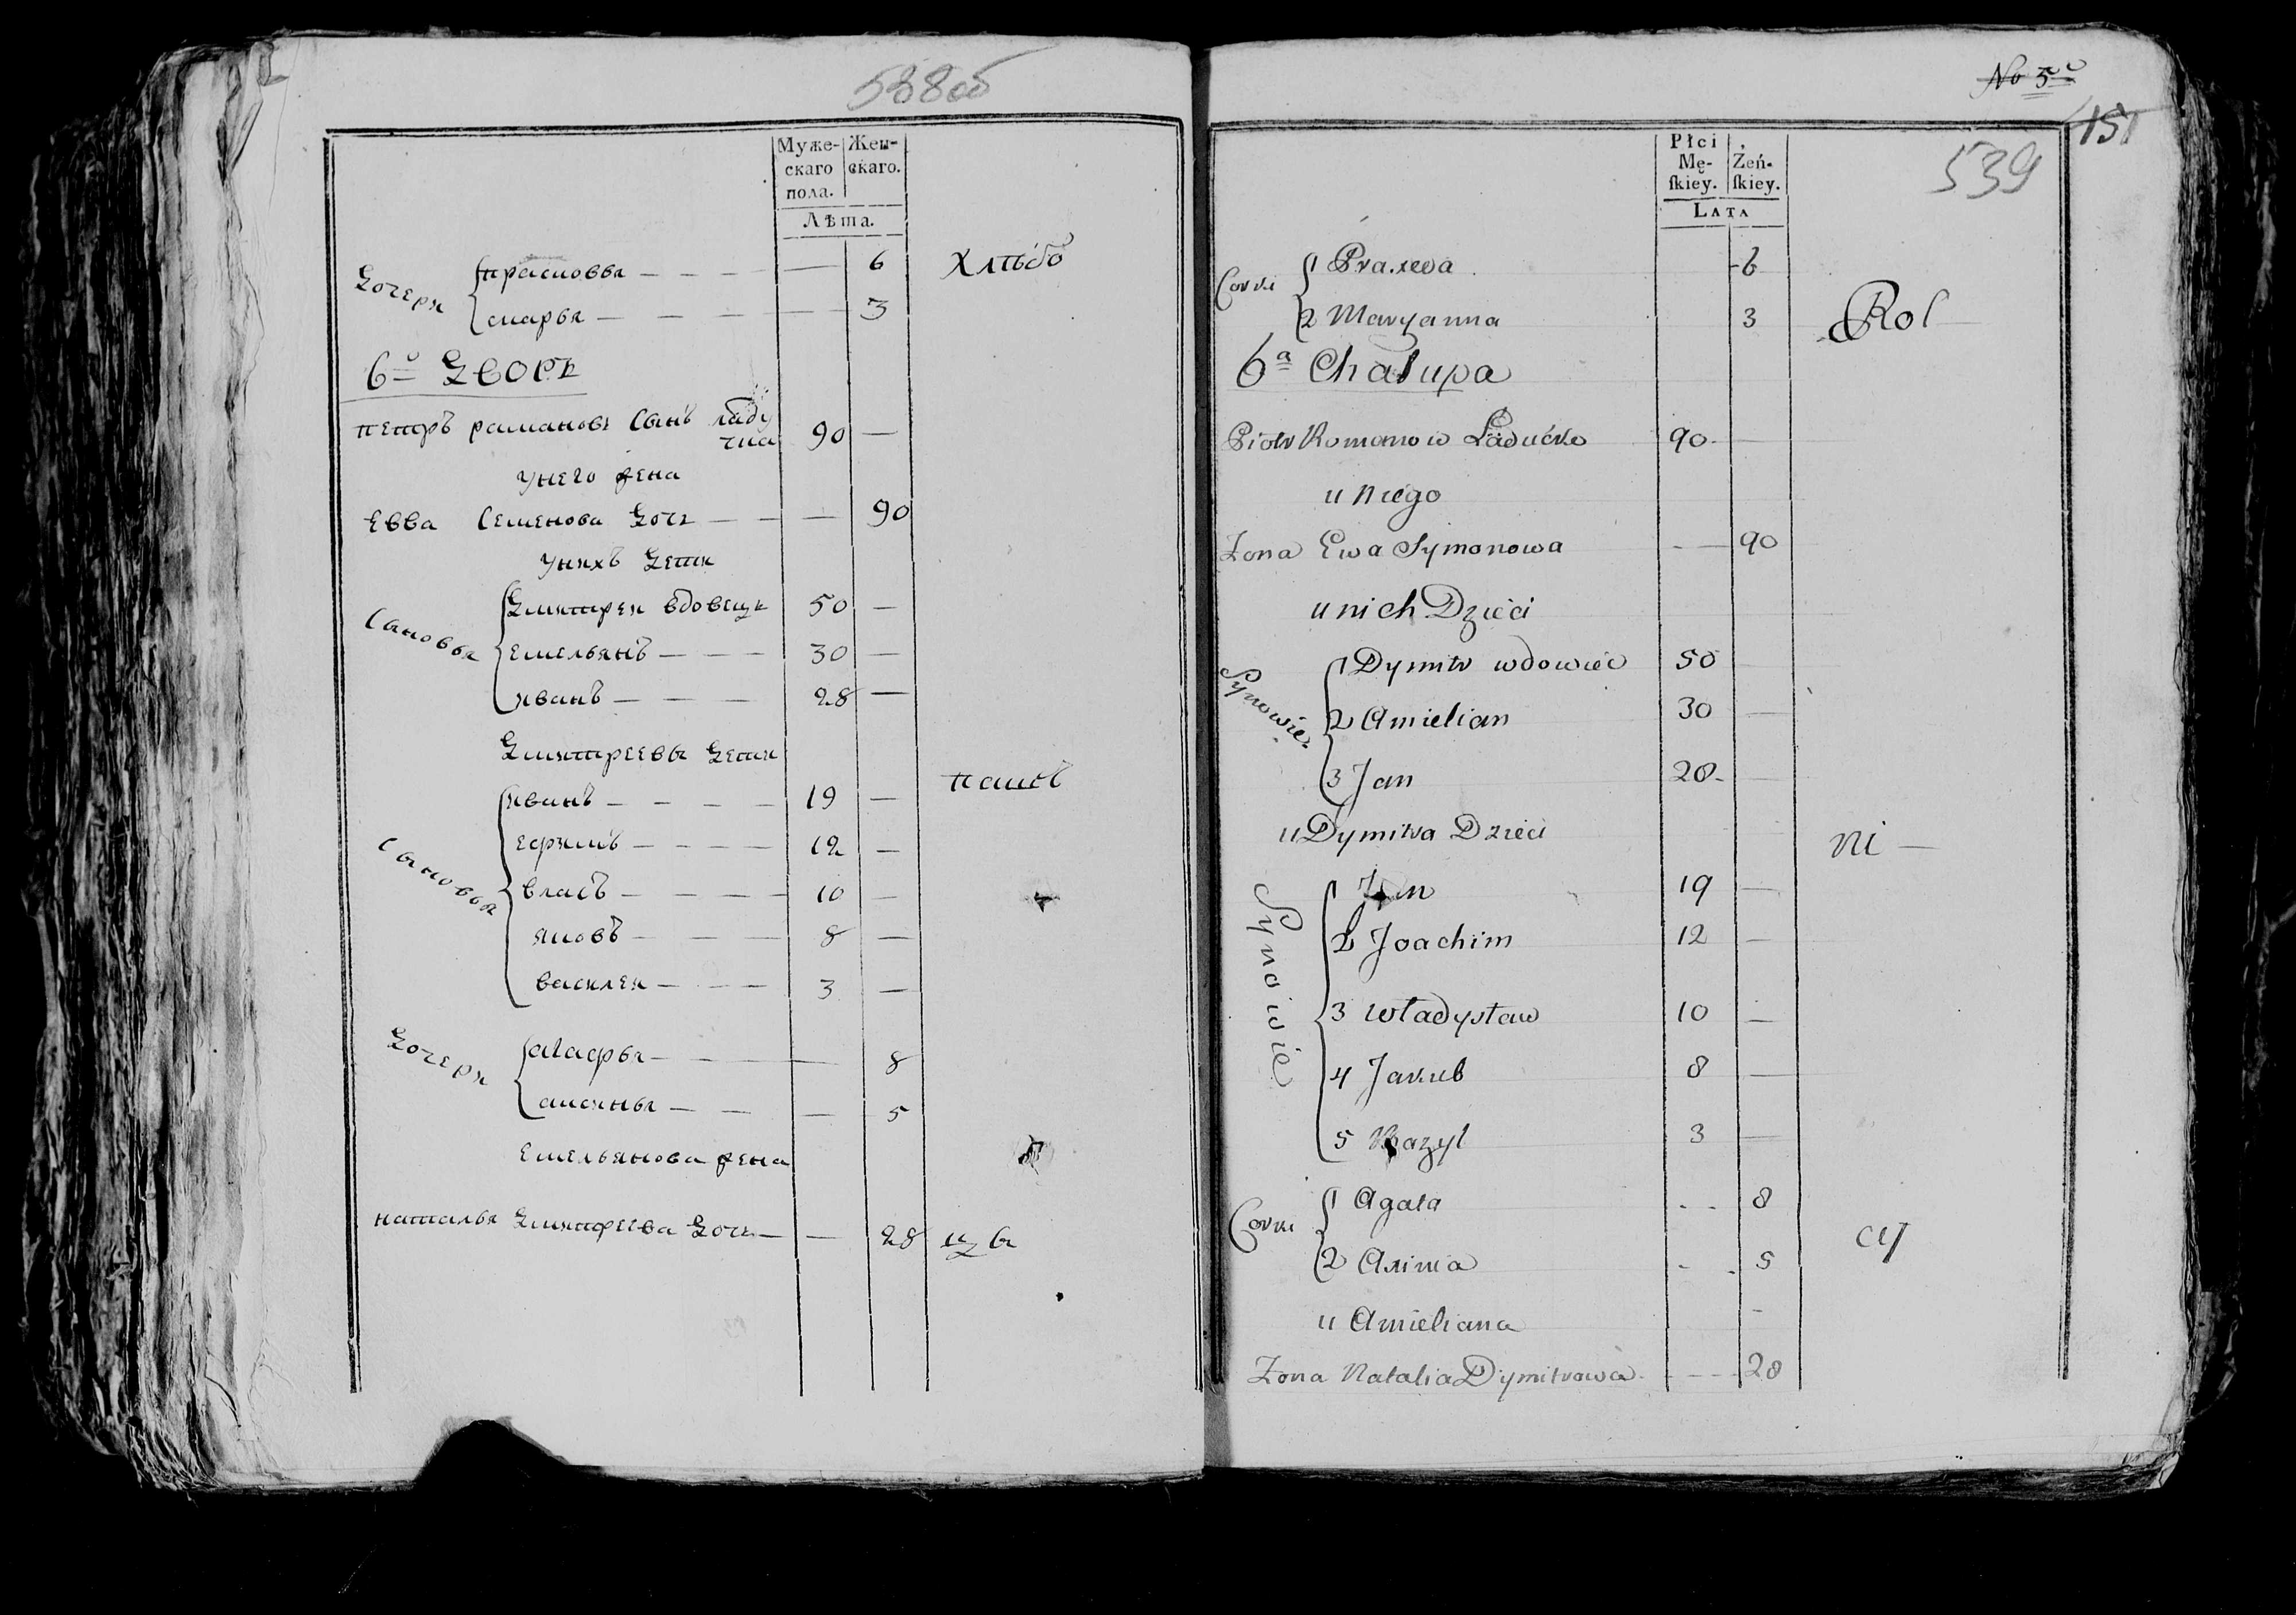 538об
Муже-скаго пола. Жен-скаго.
Лѣта.
Дочери прасковья — — — — 6 Хлѣбо
марья — — — — — 3
6й Дворъ
петръ романовъ Сынъ ладу
чка 90 —
унего жена
Евва Семенова Дочь — — — 90
Унихъ Дети
Сыновья Дмитрей вдовецъ 50 —
емельянъ — — — 30 —
иванъ — — — 28 —
Дмитреевы Дети
пашс
Сыновья иванъ — — — — 19 —
ефимъ — — — — 12 —
власъ — — — — 10 —
яковъ — — — 8 —
василей — — — 3 —
Дочери агафья — — — 8
аксинья — — — 5
Емельянова жена
наталья Дмитреева Дочь — — 28 цы
No 5й
151
539
Płci Mę-ſkiey. Żeń-ſkiey.
Lata
Corki 1 Praxeda - 6
2 Maryanna 3 Rol —
6a Chałupa
Piotr Romanow Ładućko 90 - —
u niego
Zona Ewa Symonowa - — 90
u nich Dzieci
Synowie 1 Dymitr wdowiec 50
2 Amielian 30 —
3 Jan 28 - —
u Dymitra Dzieci
ni —
Synowie 1 Jan 19 —
2 Joachim 12 —
3 Władysław 10 —
4 Jakub 8 —
5 Bazyl 3 —
Corki 1 Agata - - 8
cy
2 Axinia - - 5
u Amieliana -
Zona Natalia Dymitrowa - - - - 28